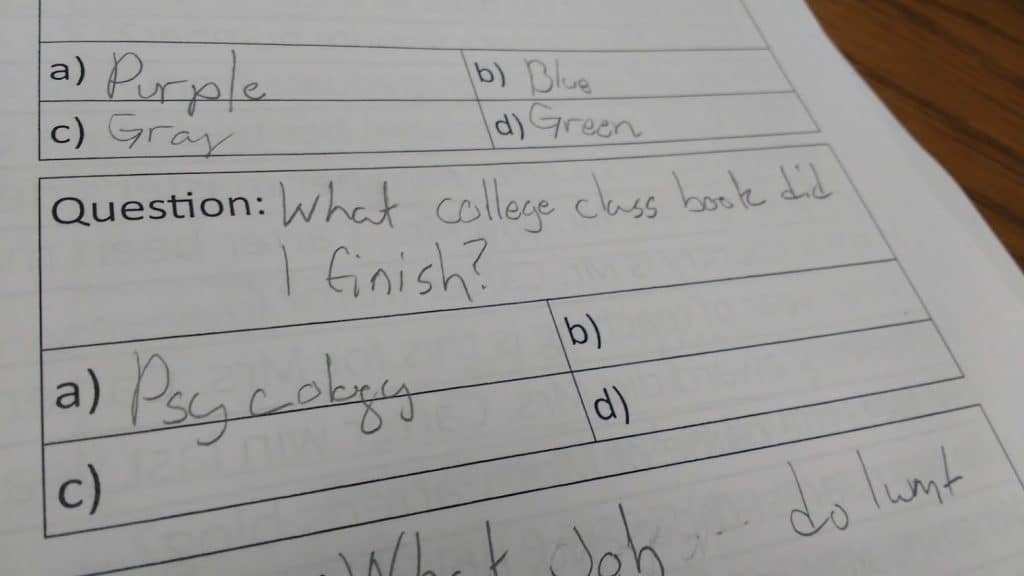 a) Purple b) Blue
c) Gray d) Green
Question: What college class book did
I finish?
a) Psycology b)
c) d)
What Job do I want